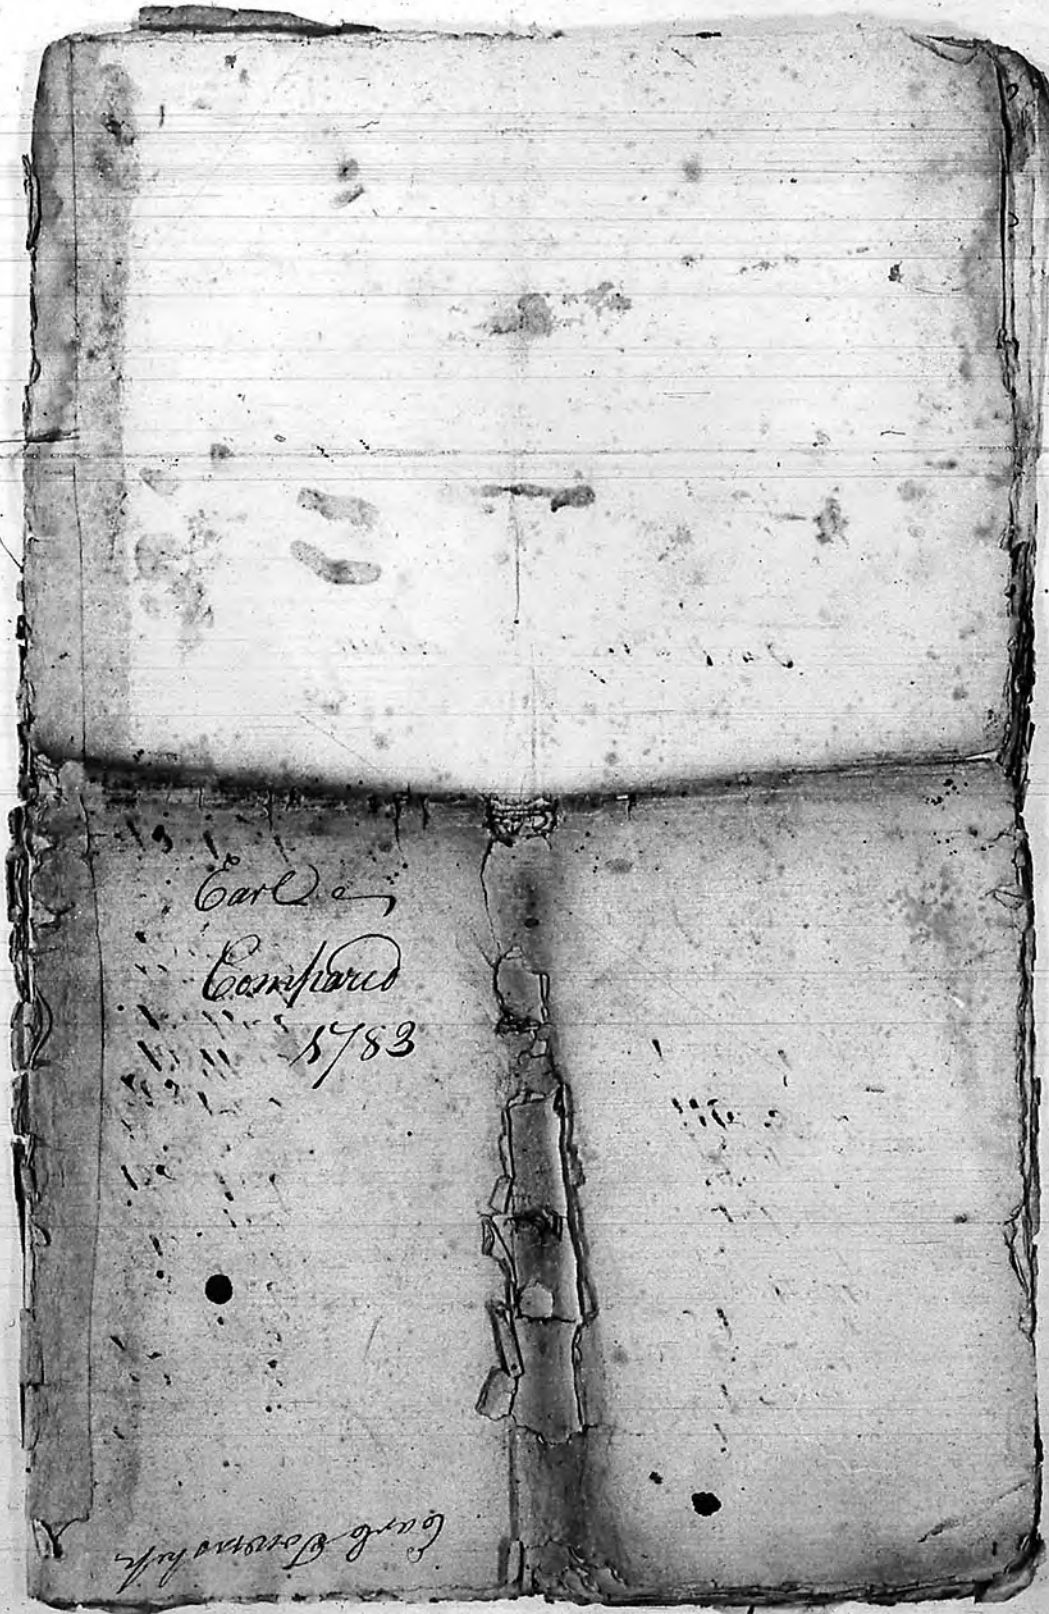 Earl
Compared
1783
Earl Township